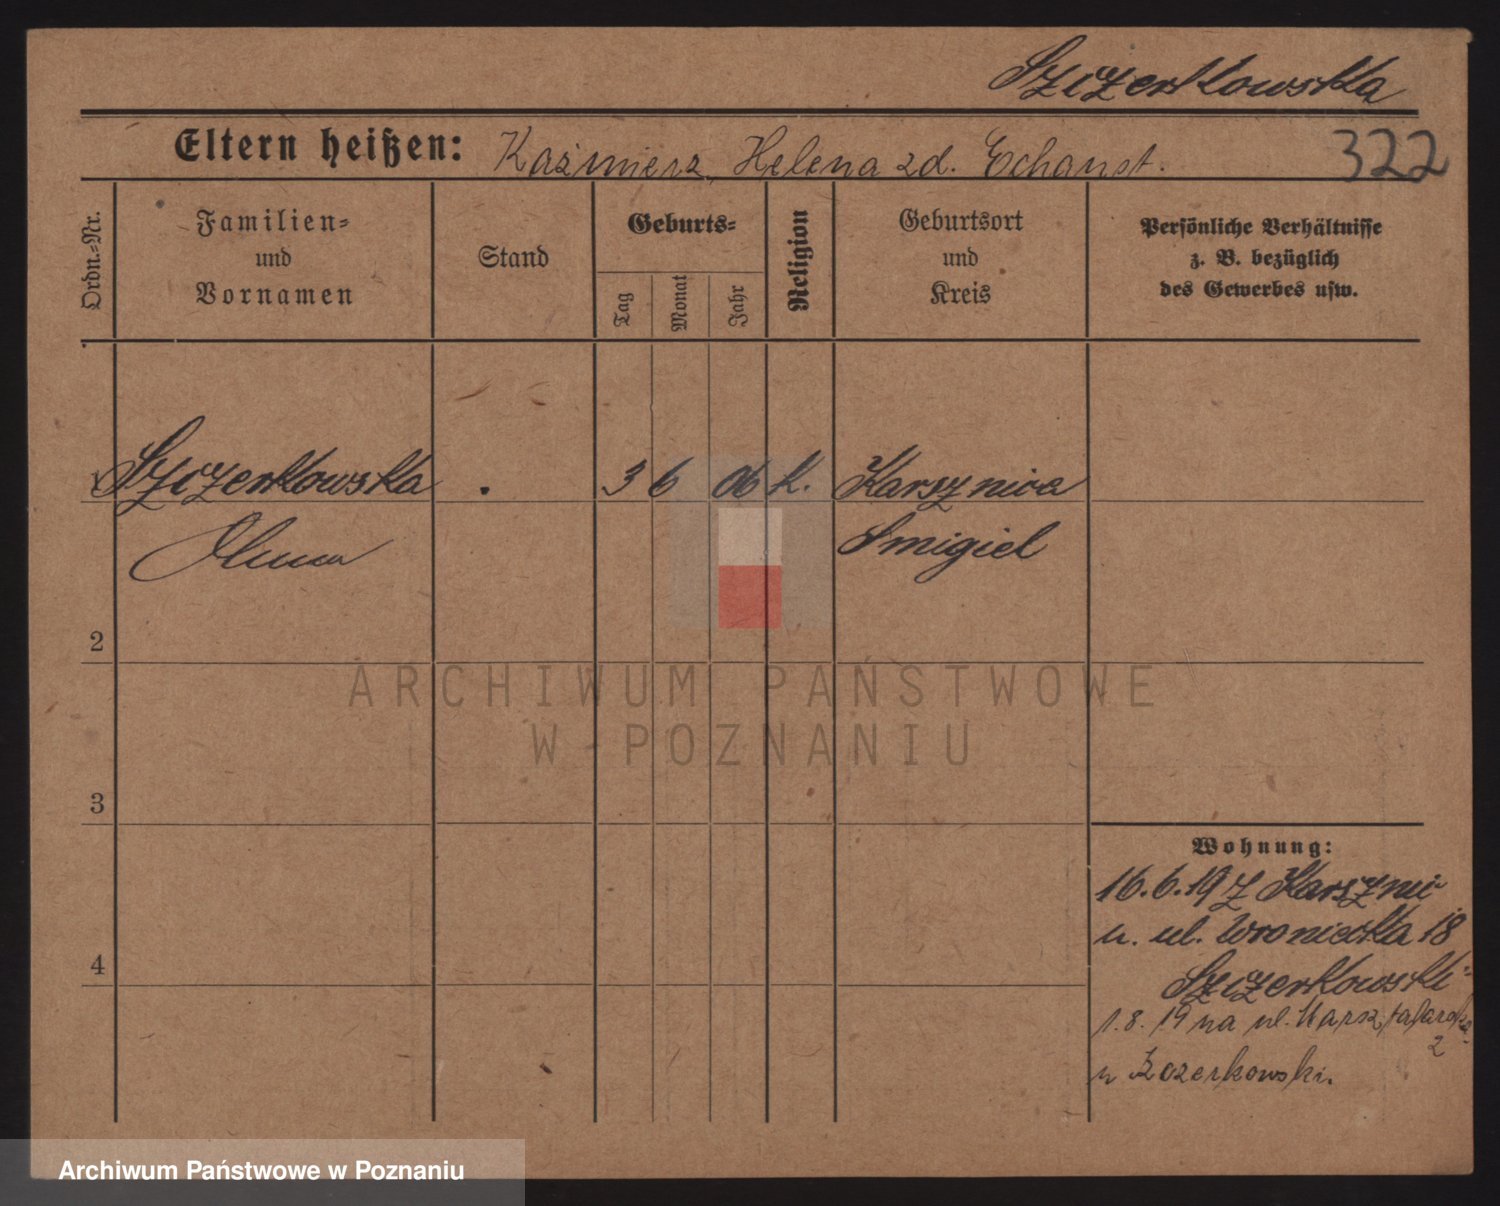 Szczerkowska
Eltern heißen: Kaźmierz, Helena zd. Echaust.
322
Ordn.-Nr.
Familien-
und
Vornamen
Stand
Geburts-
Tag
Monat
Jahr
Religion
Geburtsort
und
Kreis
Persönliche Verhältnisse
z. B. bezüglich
des Gewerbes usw.
1 Szczerkowska 3 6 06 k. Karsznica
Smigiel
2
3
4
Wohnung:
16.6.19 z Karsznic
u. ul. Wroniecka 18
Szczerkowski
1.8.19 na ul. Marsztalarska
2
u Szczerkowski.
ARCHIWUM PAŃSTWOWE
W POZNANIU
Archiwum Państwowe w Poznaniu